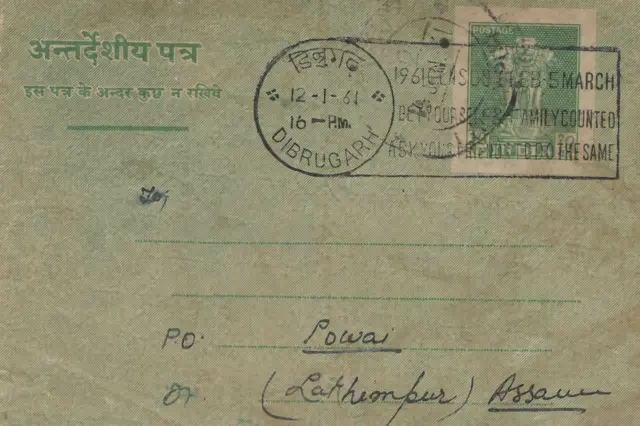 अन्तर्देशीय पत्र
इस पत्र के अन्दर कुछ न रखिये
POSTAGE
डिब्रुगढ़
12-1-61
16-P.M.
DIBRUGARH
1961 CENSUS FEB-5 MARCH
GET YOURSELF & FAMILY COUNTED
ASK YOUR FRIENDS TO DO THE SAME
To,
P.O. Powai
(Lakhimpur) Assam